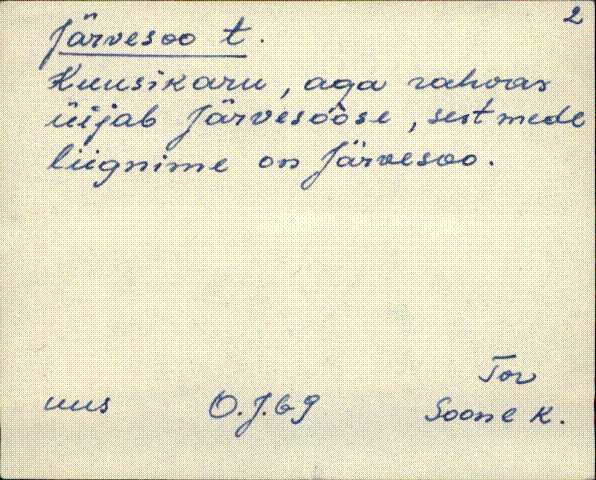 2
Järvesoo t.
Kuusikaru, aga rahvas
üijab Järvesööse, sest mede
liignime on Järvesoo.
Tor
uus O.J.69 Soone k.